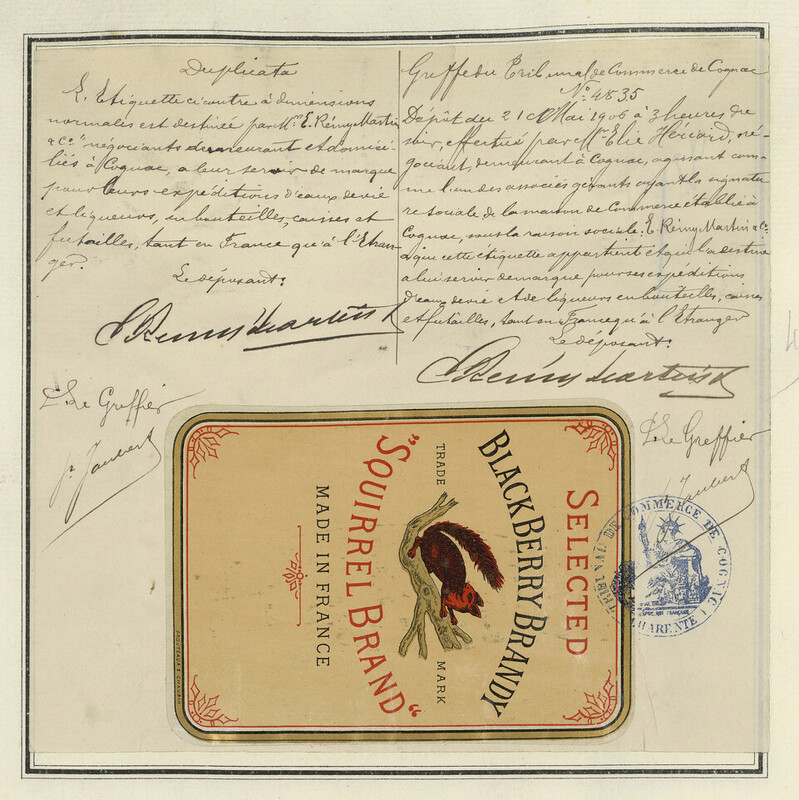 Duplicata
L'Etiquette ci contre à dimensions
normales est destinée par Mrs E. Rémy Martin
& Co négociants demeurant et domici-
liés à Cognac, a leur servir de marque
pour leurs expéditions d'eaux de vie
et liqueurs, en bouteilles, caisses et
futailles, tant en France qu'à l'Etran-
ger.
Le déposant:
E Remy Martin & Co
P. Le Greffier
Jaubert
Greffe du Tribunal de Commerce de Cognac
No 4835
Dépôt du 21 Mai 1906 à 3 heures du
soir, effectué par Mr Elie Hériard, né-
gociant, demeurant à Cognac, agissant com-
me l'un des associés gérants ayant la signatu
re sociale de la maison de Commerce établie à
Cognac, sous la raison sociale: E. Rémy Martin & Co.
a qui cette étiquette appartient et qui la destine
a lui servir de marque pour ses expéditions
d'eaux de vie et de liqueurs en bouteilles, caisses
et futailles, tant en France qu'à l'Etranger
Le déposant:
E Remy Martin & Co
P. Le Greffier
Jaubert
SELECTED
BLACKBERRY BRANDY
TRADE MARK
"SQUIRREL BRAND"
MADE IN FRANCE
DE COMMERCE DE COGNAC
CHARENTE